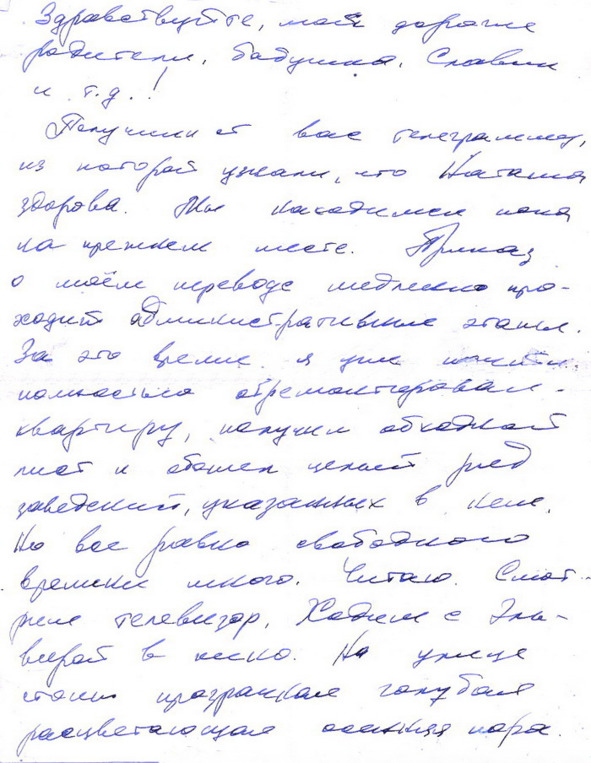 Здравствуйте, мои дорогие
родители, бабушка, Славик
и т.д.!
Получили от вас телеграмму,
из которой узнали, что Наташа
здорова. Мы находимся пока
на прежнем месте. Приказ
о моём переводе медленно про-
ходит административные этапы.
За это время я уже почти
полностью отремонтировал
квартиру, получил обходной
лист и обошел целый ряд
заведений, указанных в нем.
Но все равно свободного
времени много. Читаю. Смот-
рим телевизор, Ходим с Эль-
вирой в кино. На улице
стоит прозрачная голубая
расцветающая осенняя пора.